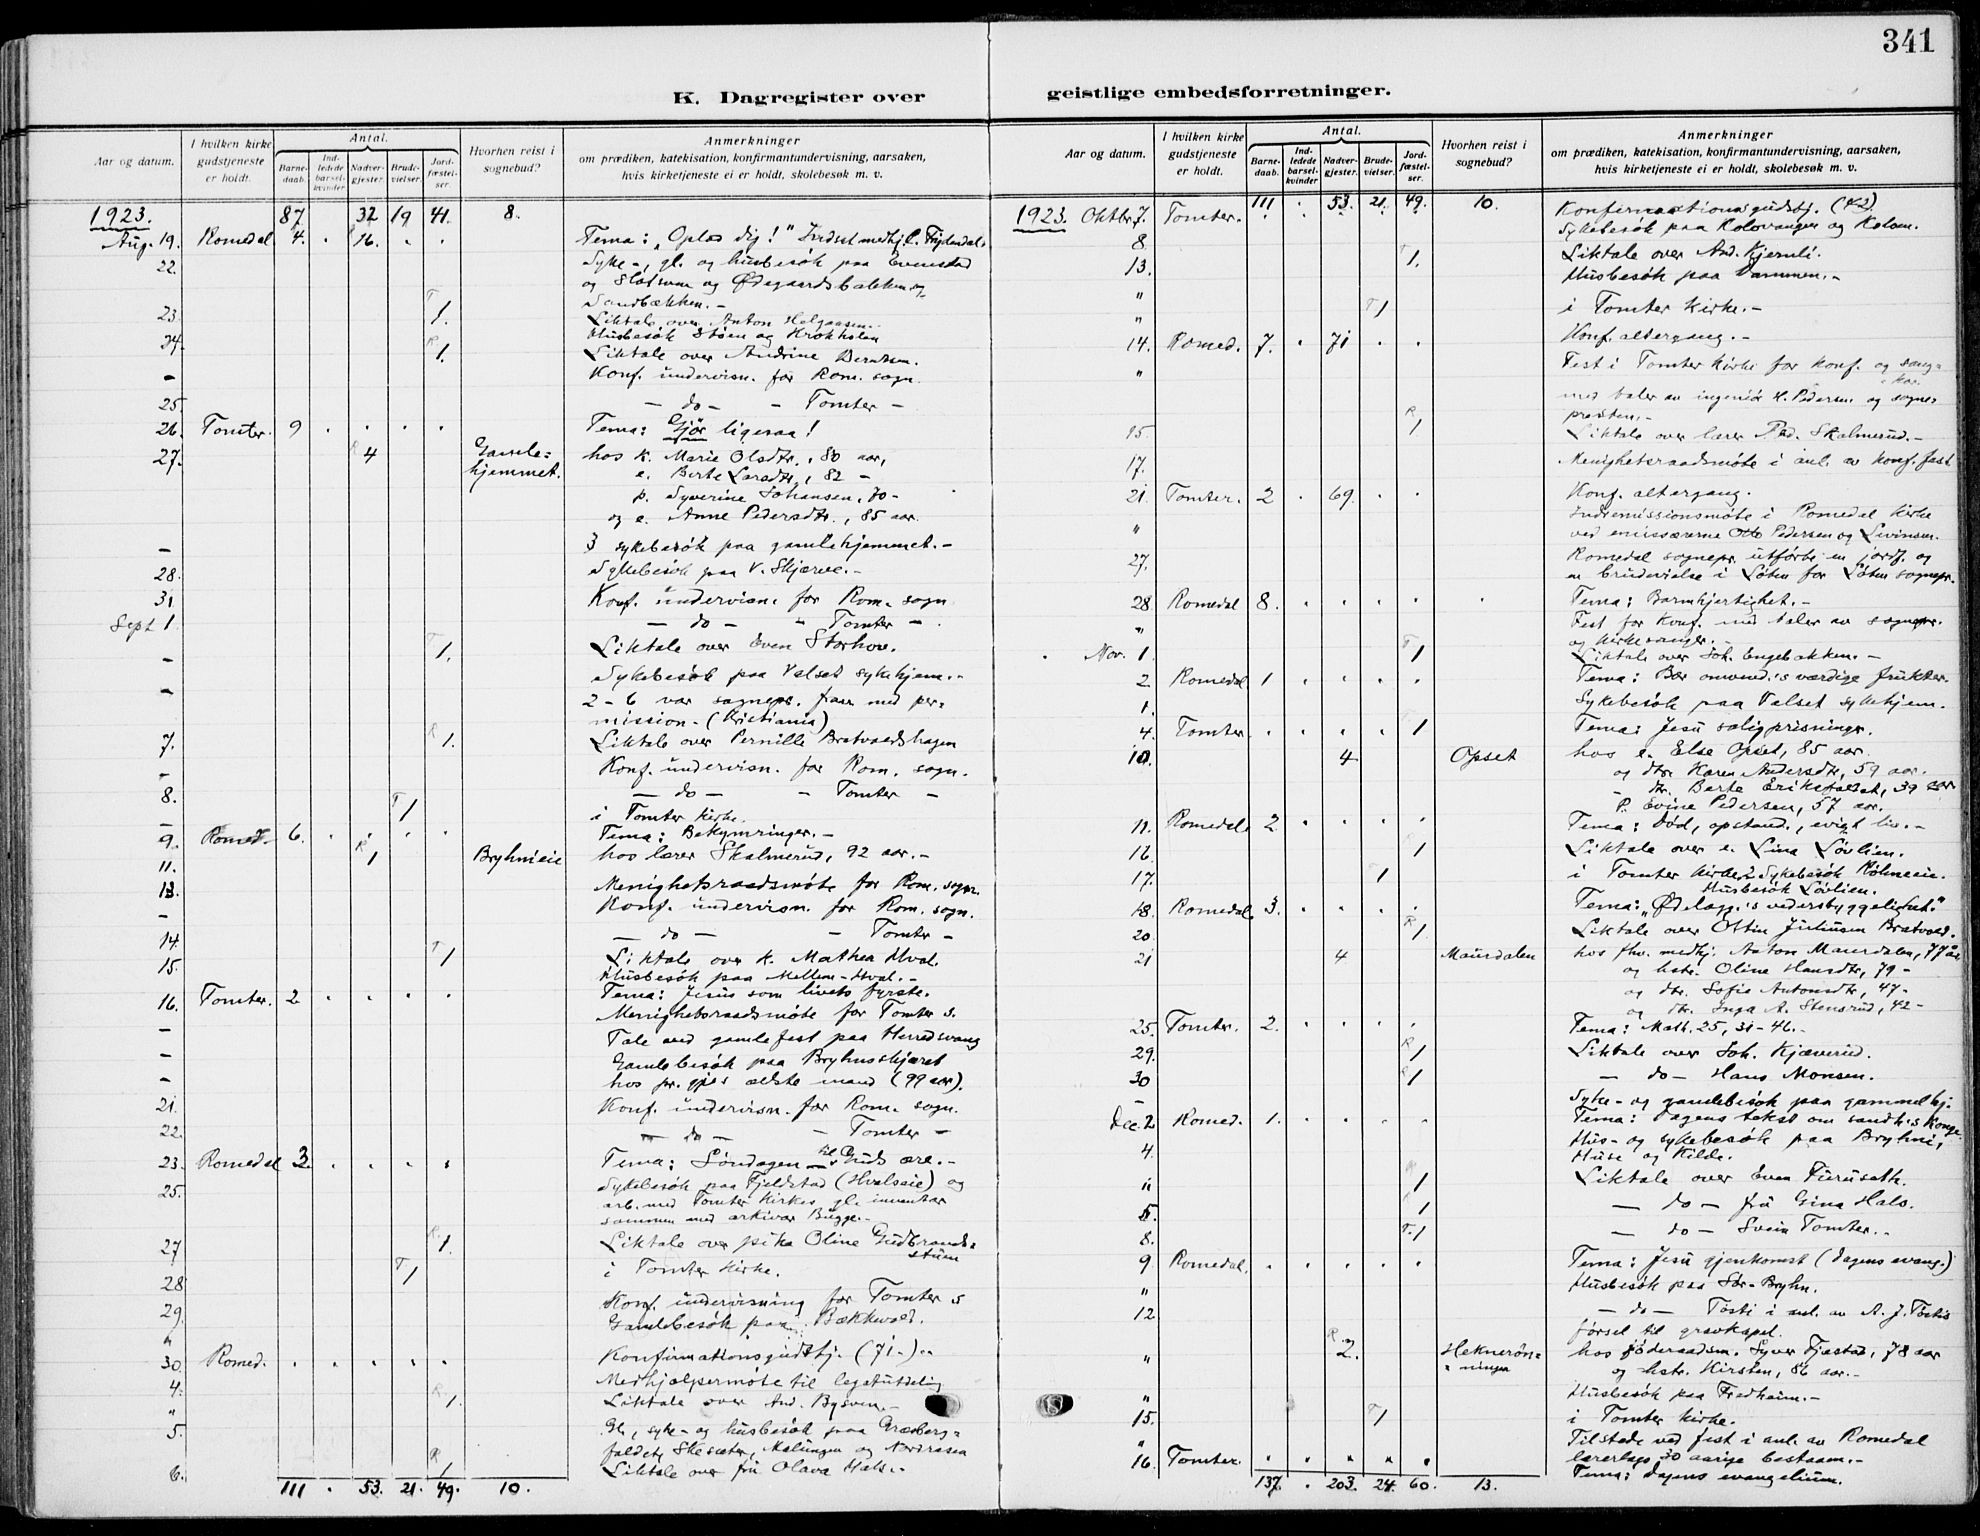 341
K. Dagregister over geistlige embedsforretninger.
Aar og datum.
I hvilken kirke gudstjeneste er holdt.
Antal.
Barnedaab.
Indledede barselkvinder
Nadvergjester.
Brudevielser.
Jordfæstelser.
Hvorhen reist i sognebud?
Anmerkninger
om prædiken, katekisation, konfirmantundervisning, aarsaken,
hvis kirketjeneste ei er holdt, skolebesøk m. v.
1923. 87 32 19 41. 8.
Aug. 19. Romedal 4. . 16. . . Tema: "Oplad dig!"
22. Syke-, gl. og husbesøk paa Evenstad
og Slotsven og Ødegaardsbakken og
Sandbækken.-
23. T 1. Liktale over Anton Helgaasen.
Husbesøk Støen og Krokholen
24. R 1. Liktale over Andrine Berntsen.
- Konf. undervisn. for Rom. sogn.
25. - do - - Tomter -
26. Tomter. 9 . . . . Tema: Gjør ligesaa!
27. R 4 Gamle=hjemmet. hos k. Marie Olsdtr., 80 aar,
e. Berte Larsdtr., 82 -
p. Syverine Johansen, 70 -
og e. Anne Pedersdtr., 85 aar.
- 3 sykebesøk paa gamlehjemmet.-
28. Sykebesøk paa V. Skjærve.-
31 Konf. undervisn. for Rom. sogn
Sept 1. - do - - Tomter -
- T 1. Liktale over Even Storhov.
- Sykebesøk paa Valset sykehjem.-
2 - 6 var sognepr. fravær med per=
mission - (Kristiania)
7. R 1. Liktale over Pernille Bratvoldshagen
- Konf. undervisn. for Rom. sogn.
8. - do - - Tomter -
- T 1 i Tomter kirke.
9. Romed. 6. . . . . Tema: Bekymringer.-
11. R 1 Bryhnieie hos lærer Skalmerud, 92 aar.-
13. Menighetsraadsmøte for Rom. sogn.
- Konf. undervisn. for Rom. sogn.
14. - do - - Tomter -
15. T 1 Liktale over k. Mathea Hval.
Husbesøk paa Mellem-Hval.-
16. Tomter. 2 . . . . Tema: Jesus som livets fyrste.
- Menighetsraadsmøte for Tomter s.
- Tale ved gamlefest paa Herredsvang
- Gamlebesøk paa Bryhnsskjæret
hos pr.gjes ældste mand (99 aar).
21. Konf. undervisn. for Rom. sogn.
22. - do - - Tomter -
23. Romedal 3. . . . . Tema: Søndagen til Guds ære.-
25. Sykebesøk paa Fjeldstad (Hvalseie) og
arb. med Tomter kirkes gl. inventar
sammen med arkivar Bugge.-
27 R 1. Liktale over pike Oline Gudbrands=
stuen
28 T 1 i Tomter kirke.
29. Konf. undervisning for Tomter s
" Gamlebesøk paa Bækkevold.
30 Romed. . . . . . Konfirmationsgudstj. (71-)..
4. Medhjælpermøte til legatutdeling
" R 1. Liktale over And. Bysveen.-
5. Gl., syke- og husbesøk paa Græsberg=
faldet, Skesæter, Malungen og Nordaasen
6. R 1 Liktale over fru Olava Hals.-
111 . 53. 21. 49. 10.
Aar og datum.
I hvilken kirke gudstjeneste er holdt.
Antal.
Barnedaab.
Indledede barselkvinder
Nadvergjester.
Brudevielser.
Jordfæstelser.
Hvorhen reist i sognebud?
Anmerkninger
om prædiken, katekisation, konfirmantundervisning, aarsaken,
hvis kirketjeneste ei er holdt, skolebesøk m. v.
111 . 53. 21. 49. 10.
1923. Oktbr. 7. Tomter. . . . . . Konfirmationsgudstj. (42)
8. Sykebesøk paa Kolovangen og Koloen.
13. T 1. Liktale over And. Kjernli.
" Husbesøk paa Dammen.-
" T 1 i Tomter kirke.-
14. Romed. 7. . 71 . . Konf. altergang.-
" Fest i Tomter kirke for konf. og sang=
kor.
med taler av ingeniør H. Pedersen og sogne=
presten.-
15. R 1 Liktale over lærer Ped. Skalmerud.-
17. Menighetsraadsmøte i anl. av konf. fest
21. Tomter. 2 . 69. . . Konf. altergang.
" Indremissionsmøte i Romedal kirke
ved emissærerne Otto Pedersen og Sivinsen.
27. Romedal sognepr. utførte en jordf. og
en brudevielse i Løten for Løten sognepr.
28 Romedal 8. . . . . . Tema: Barmhjertighet.-
" Fest for konf. med taler av sognepr.
og kirkesanger.-
Nov. 1. T 1 Liktale over Joh. Engebakken.-
2 Romedal 1 . . . . Tema: Bær omvend.s værdige frukter.
1. Sykebesøk paa Valset sykehjem.
4. Tomter . . . . T 1 Tema: Jesu saligprisninger.
10. 4 Opset hos e. Else Opset, 85 aar.
og dtr. Karen Andersdtr, 59 aar.
- dtr. Berte Eriksfallet, 39 aar
P. Evine Pedersen, 57 aar.
11. Romedal. 2 . . . . Tema: Død, opstand., evigt liv.-
16. R 1 Liktale over e. Lina Løvlien.
17. T 1 i Tomter kirke. 2 Sykebesøk Røhneeie.
Husbesøk Løvlien.
18. Romedal 3. . . . . Tema: "Ødelægg.s vederstyggelighet."
20 R 1. Liktale over Ottin Juliusen Bratvold.
21 4 Maurdalen hos fhv. medhj. Anton Maurdalen, 77 år
og hstr. Oline Hansdtr, 79 -
og dtr. Sofie Antonsdtr, 47 -
og dtr. Inga A. Stensrud, 42 -
25. Tomter. 2. . . . . Tema: Matt. 25, 31-46.-
29. R 1 Liktale over Joh. Kjæverud.
30 R 1 - do - Hans Monsen.
- Syke- og gamlebesøk paa gammelhj.
Dec. 2 Romed. 1. . . . . Tema: Dagens tekst om sandh.s konge
4. Hus- og sykebesøk paa Bryhni,
Huse og Kilde.
" 1 Liktale over Even Furuseth.
5. 1 - do - fru Gina Hals.
8. T. 1 - do - Svein Tomter.-
9 Romedal. . . . . . Tema: Jesu gjenkomst (dagens evang.)
" Husbesøk paa Sør-Bryhn.
12. - do - Tosti i anl. av A. J. Tostis
førsel til gravkapel.
" R 2. Heknerøn=ningen hos føderaadsm. Syver Fjæstad, 78 aar
og hstr. Kirsten, 86 aar.-
" Husbesøk paa Fredheim.-
15. T 1 i Tomter kirke.
" Tilstede ved fest i anl. av Romedal
lærerlags 30 aarige bestaaen.-
16. Tomter. . . . . . Tema: Dagens evangelium.
137. . 203. 24. 60. 13.